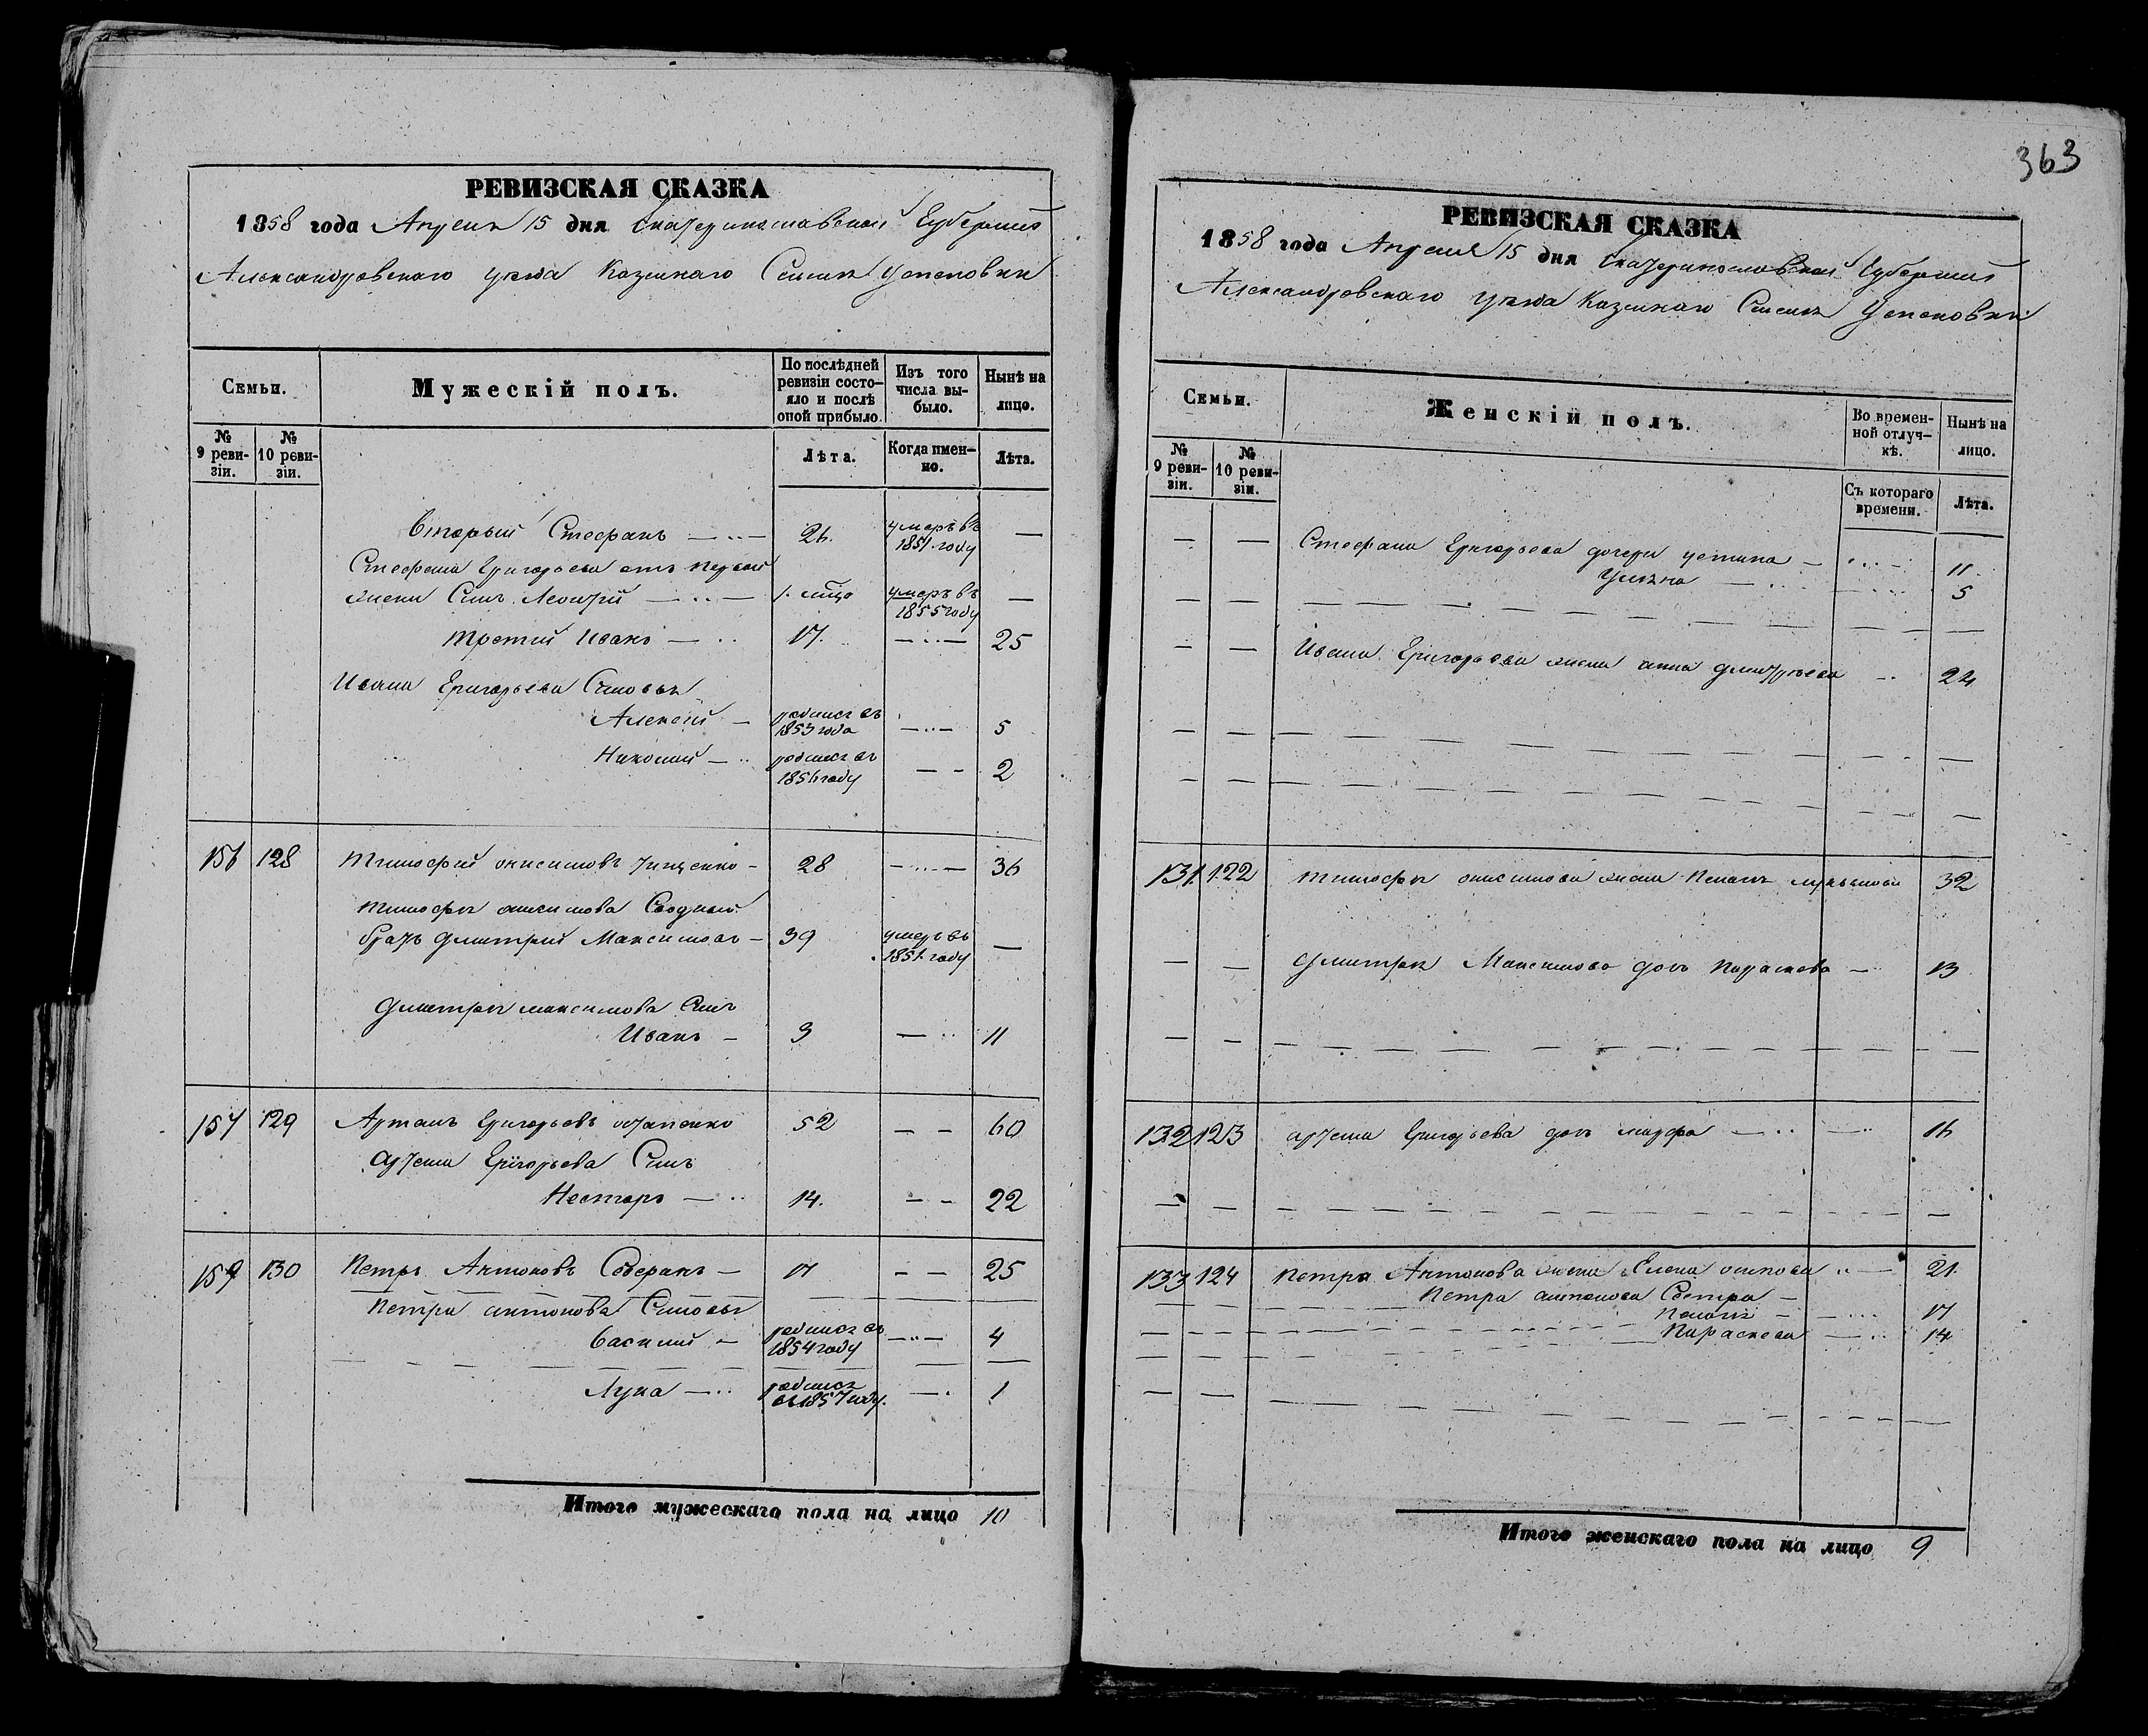 РЕВИЗСКАЯ СКАЗКА
1858 года Апреля 15 дня Екатеринославской Губернии
Александровского уезда Казенного Селения Успеновки
Семьи.
Мужескій полъ.
По послѣдней ревизіи состояло и послѣ оной прибыло.
Изъ того числа выбыло.
Нынѣ на лицо.
№ 9 ревизіи.
№ 10 ревизіи.
Лѣта.
Когда имен-но.
Лѣта.
Вторый Стефанъ — 26. умеръ въ 1851. году —
Стефана Григорьева отъ первой
жени Сынъ Леонтій — 1. умеръ въ 1855 году —
третий Иванъ — 17. — 25
Ивана Григорьева Сыновья
Алексей — родился въ 1853 года — 5
Николай — родился въ 1856 году — 2
156 128 Тимофей онисимовъ тищенко — 28 — 36
Тимофея онисимова Сводный
братъ Дмитрий Максимовъ — 39 умеръ въ 1851. году —
Дмитрия максимова Сынъ
Иванъ — 3 — 11
157 129 Артемъ Григорьевъ остапенко 52 — 60
Артема Григорьева Сынъ
Несторъ — 14. — 22
159 130 Петръ Антоновъ — 17 — 25
Петра антонова Сыновья
Василий — родился въ 1854 году — 4
Лука — родился въ 1857 году. — 1
Итого мужескаго пола на лицо 10
363
РЕВИЗСКАЯ СКАЗКА
1858 года Апреля 15 дня Екатеринославской Губернии
Александровского уезда Казенного Селения Успеновки
Семьи.
Женскій полъ.
Во времен-ной отлуч-кѣ.
Нынѣ на лицо.
№ 9 ревизіи.
№ 10 ревизіи.
Съ котораго времени.
Лѣта.
— — Стефана Григорьева дочери устина — 11
Ульяна — 5
— — Ивана Григорьева жена анна дмитриева — 24
131. 122 Тимофея онисимова жена Пелагея 32
— — Дмитрия Максимова дочь параскева — 13
132 123 артема Григорьева дочь марфа — 16
133 124 Петра Антонова жена Елена осипова — 21.
Петра антонова Сестра —
Пелагея — 17
Параскева — 14
Итого женскаго пола на лицо 9